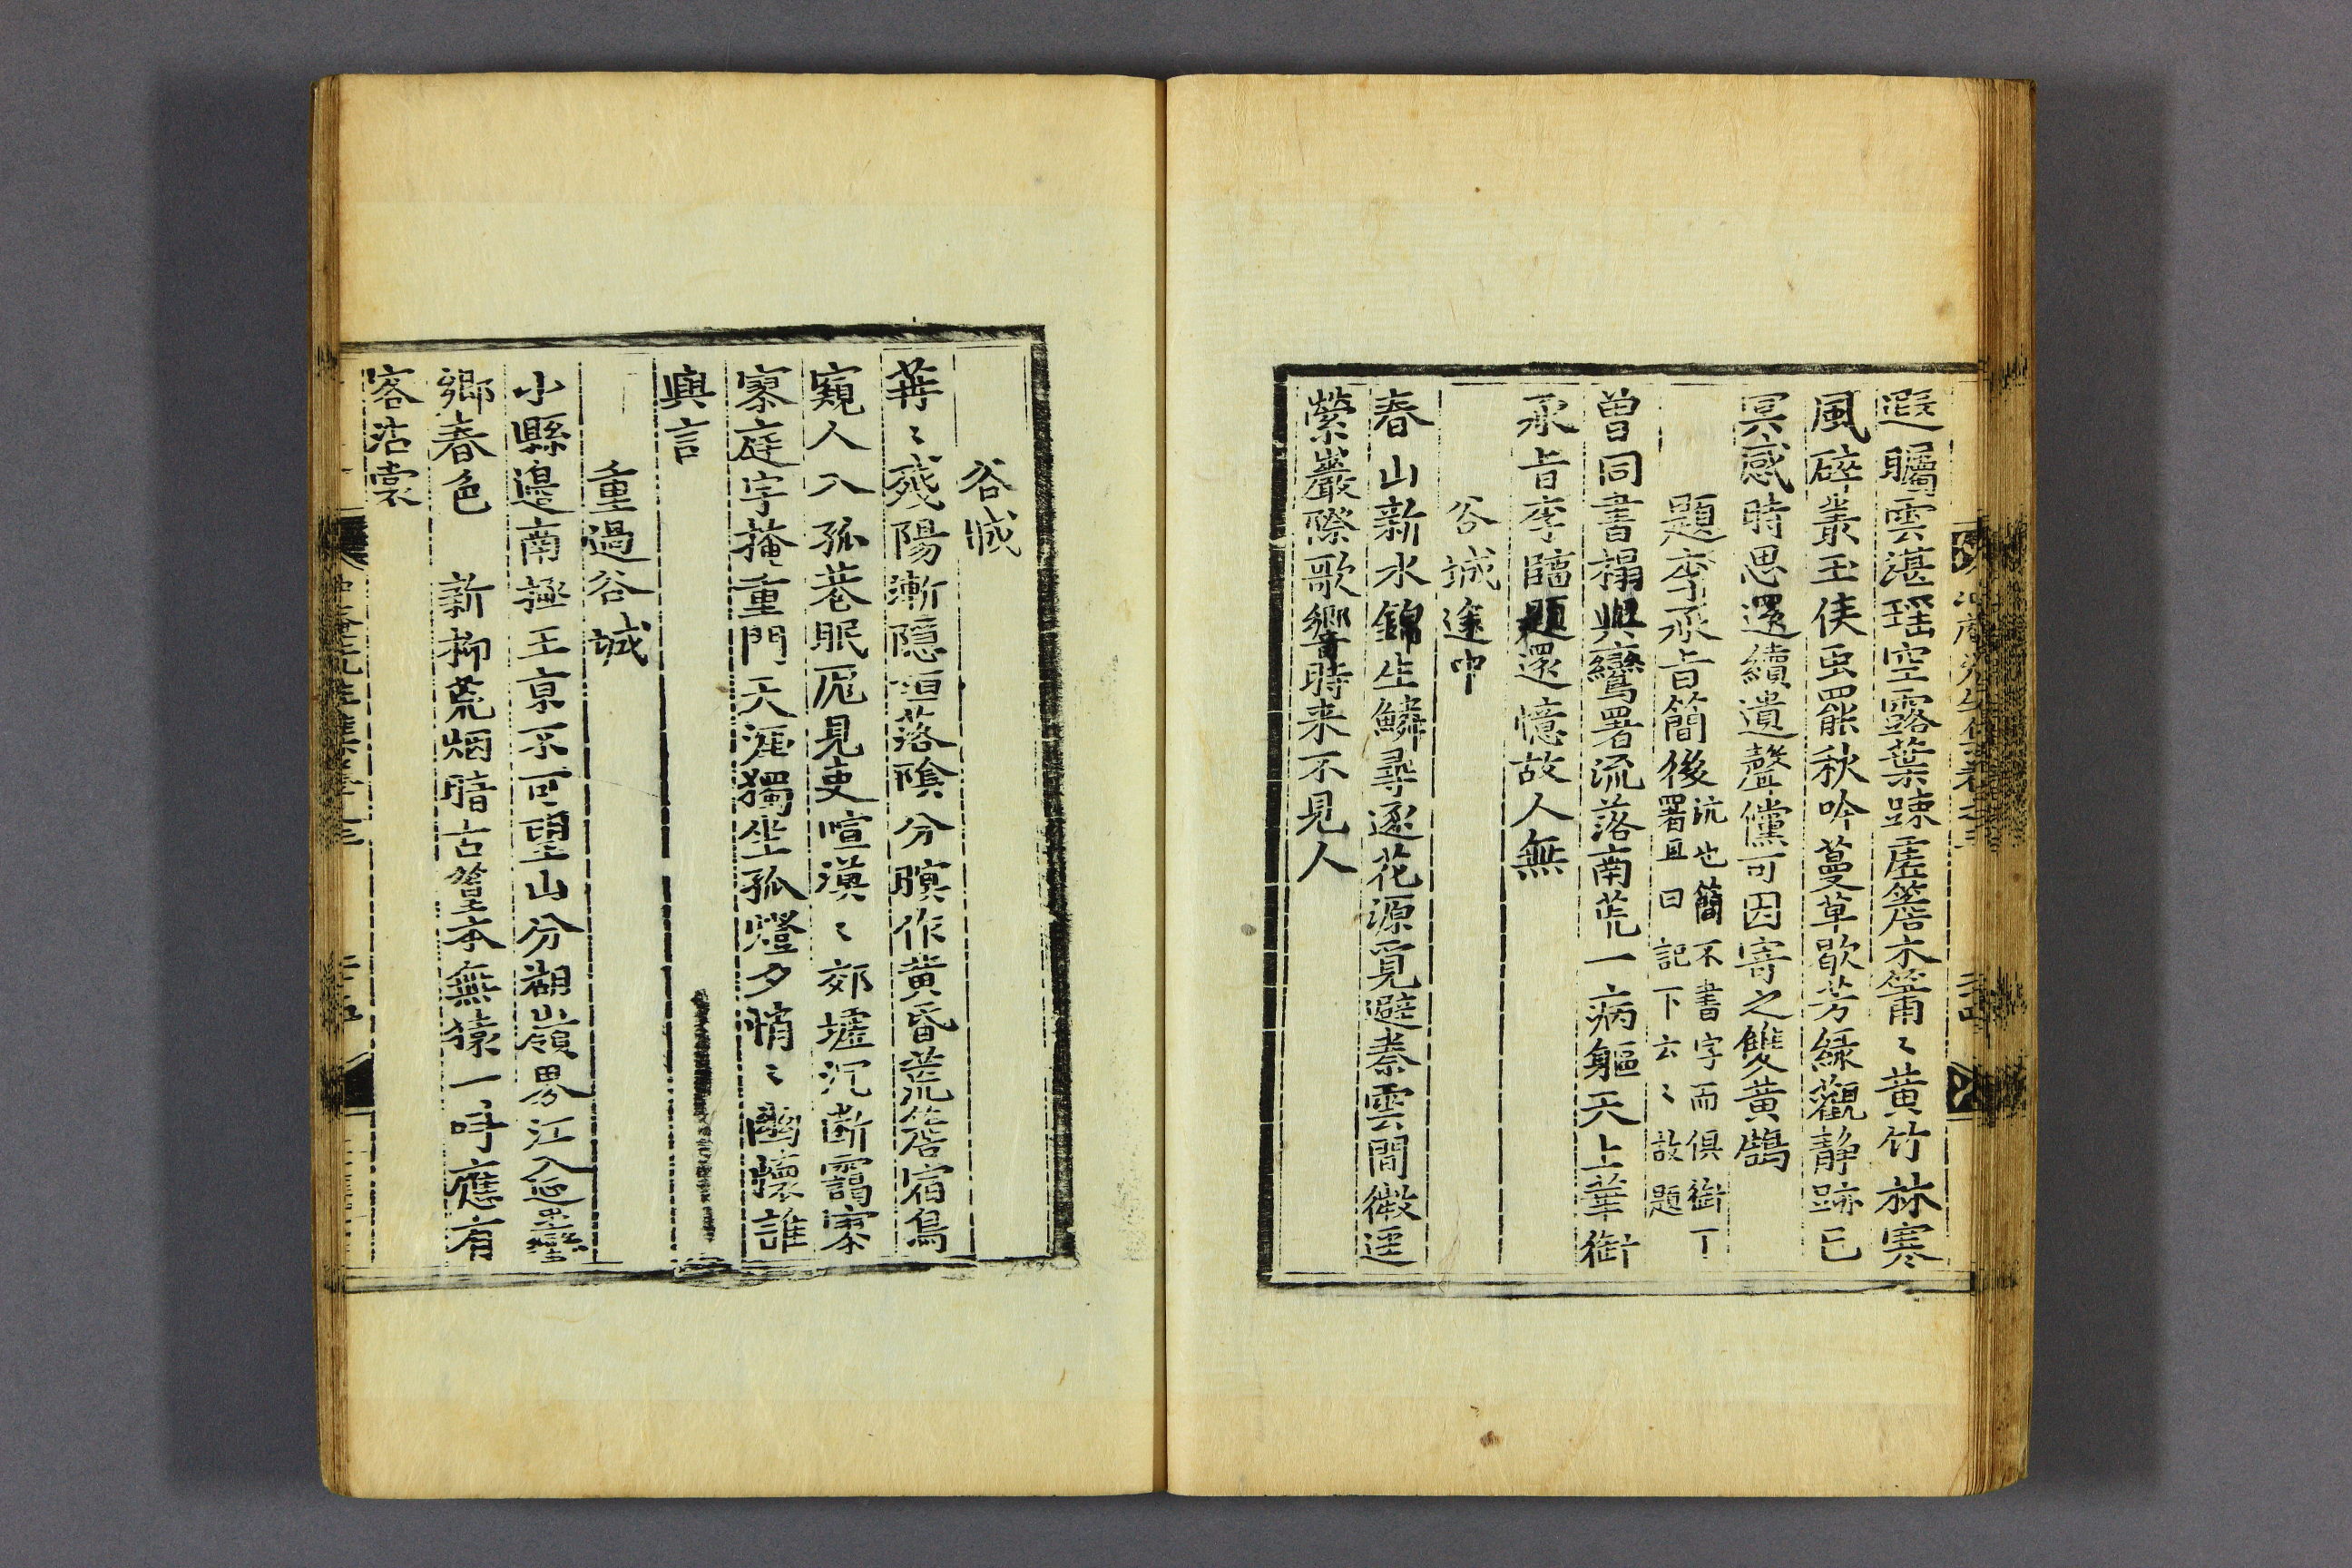 遐矚雲湛瑤空露葉踈虛簷木籜〻黃竹林寒
風碎叢玉侯虫罷秋吟蔓草歇芳綠觀靜跡已
冥感時思還續遺聲儻可因寄之雙黃鵠
題李承旨簡後沆也簡不書字而俱銜丁
署且曰記下云〻故題
曾同書榻與鸞署流落南荒一病軀天上華銜
承旨李臨題還憶故人無
谷城途中
春山新水錦生鱗尋逐花源覓避秦雲間微逕
縈巖際歌響時来不見人
谷城
苒〻殘陽漸隱垣落陰分暝作黃昏荒簷宿鳥
窺人入孤巷眠厖見吏喧漠〻郊墟沉斷靄寥
寥庭宇掩重門天涯獨坐孤燈夕悄〻幽懷誰
與言
重過谷城
小縣邉南極王京不可望山分湖嶺界江入
鄉春色 新柳荒烟暗古篁本無猿一呼應有
客沾裳